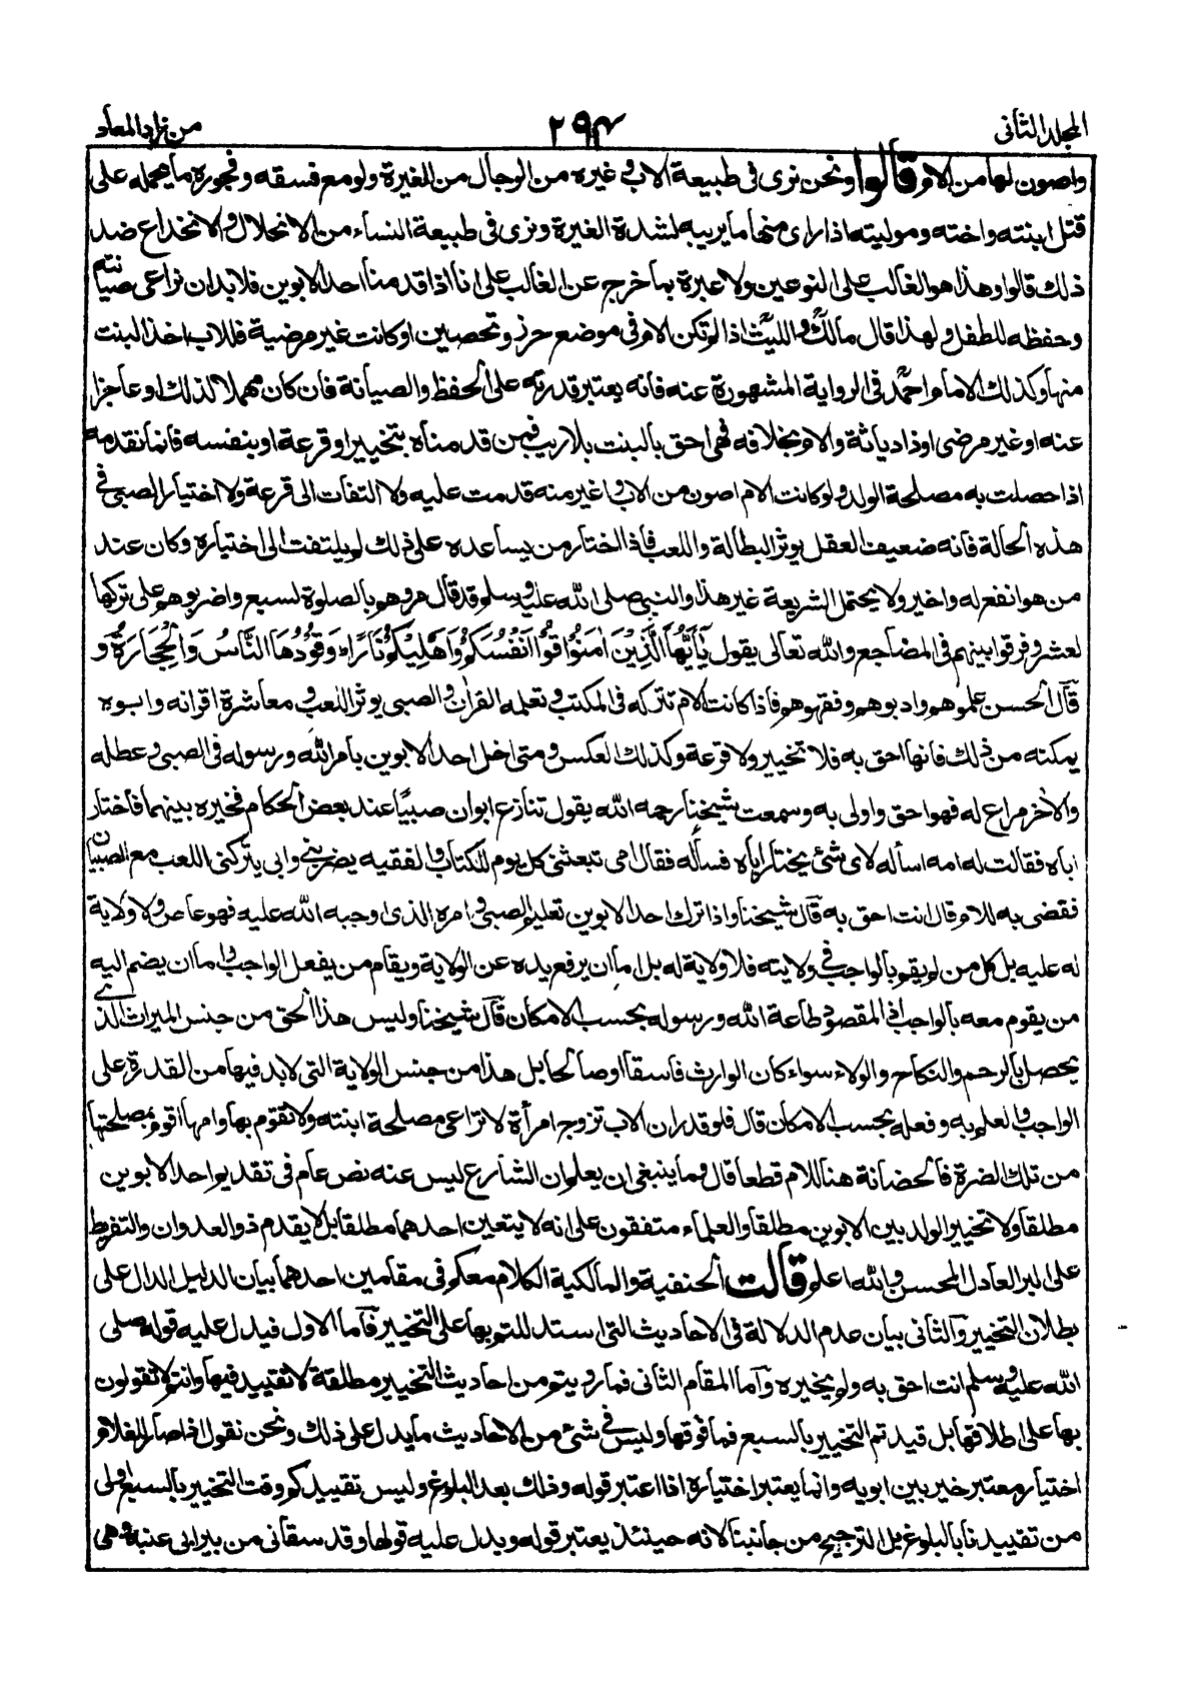 المجلد الثاني ٢٩٤ من زاد المعاد
واصون لها من الام قالوا ونحن نرى في طبيعة الاب وغيره من الرجال من الغيرة ولو مع فسقه وفجوره ما يحمله على
قتل ابنته واخته وموليته اذا راى منها ما يريبه لشدة الغيرة ونرى في طبيعة النساء من الانحلال والانخداع ضد
ذلك قالوا وهذا هو الغالب على النوعين ولا عبرة بما خرج عن الغالب على انا اذا قدمنا احد الابوين فلا بد ان نراعى صيانته
وحفظه للطفل ولهذا قال مالك والليث اذا لم تكن الام في موضع حرز وتحصين او كانت غير مرضية فللاب اخذ البنت
منها وكذلك الامام احمد في الرواية المشهورة عنه فانه يعتبر قدرته على الحفظ والصيانة فان كان مهملا لذلك او عاجزا
عنه او غير مرضى او ذا دياثة والام بخلافه فهى احق بالبنت بلا ريب فمن قدمناه بتخيير او قرعة او بنفسه فانما نقدمه
اذا حصلت به مصلحة الولد ولو كانت الام اصون من الاب واغير منه قدمت عليه ولا التفات الى قرعة ولا اختيار الصبي في
هذه الحالة فانه ضعيف العقل يوثر البطالة واللعب فاذا اختار من يساعده على ذلك لم يلتفت الى اختياره وكان عند
من هو انفع له واخير ولا يحتمل الشريعة غير هذا والنبي صلى الله عليه وسلم قد قال مروهم بالصلوة لسبع واضربوهم على تركها
لعشر وفرقوا بينهم في المضاجع والله تعالى يقول يٰٓاَيُّهَا الَّذِيْنَ اٰمَنُوْا قُوْٓا اَنْفُسَكُمْ وَاَهْلِيْكُمْ نَارًا وَّقُوْدُهَا النَّاسُ وَالْحِجَارَةُ و
قال الحسن علموهم وادبوهم وفقهوهم فاذا كانت الام تتركه في المكتب وتعلمه القران والصبي يوثر اللعب ومعاشرة اقرانه وابوه
يمكنه من ذلك فانها احق به فلا تخيير ولا قرعة وكذلك العكس ومتى اخل احد الابوين بامر الله ورسوله في الصبي وعطله
والاٰخر مراع له فهو احق واولى به وسمعت شيخنا رحمه الله يقول تنازع ابوان صبيًا عند بعض الحكام فخيره بينهما فاختار
اباه فقالت له امه اسأله لاى شئ يختار اباه فسأله فقال امى تبعثنى كل يوم للكتاب والفقيه يضربني وابى يتركنى اللعب مع الصبيان
فقضى به للام قال انت احق به قال شيخنا واذا ترك احد الابوين تعليم الصبي وامره الذى اوجبه الله عليه فهو عاص ولا ولاية
له عليه بل كل من لم يقم بالواجب في ولايته فلا ولاية له بل اما ان يرفع يده عن الولاية ويقام من يفعل الواجب واما ان يضم اليه
من يقوم معه بالواجب اذ المقصود طاعة الله ورسوله بحسب الامكان قال شيخنا وليس هذا الحق من جنس الميراث الذى
يحصل بالرحم والنكاح والولاء سواء كان الوارث فاسقا او صالحا بل هذا من جنس الولاية التى لا بد فيها من القدرة على
الواجب والعلم به وفعله بحسب الامكان قال فلو قدر ان الاب تزوج امرأة لا تراعى مصلحة ابنته ولا تقوم بها وامها اقوم بمصلحتها
من تلك الضرة فالحضانة هنا للام قطعا قال ومما ينبغى ان يعلم ان الشارع ليس عنه نص عام في تقديم احد الابوين
مطلقا ولا تخيير الولد بين الابوين مطلقا والعلماء متفقون على انه لا يتعين احدهما مطلقا بل لا يقدم ذو العدوان والتفريط
على البر العادل المحسن والله اعلم قالت الحنفية والمالكية الكلام معكم في مقامين احدهما بيان الدليل الدال على
بطلان التخيير والثانى بيان عدم الدلالة في الاحاديث التى استدللتم بها على التخيير فاما الاول فيدل عليه قوله صلى
الله عليه وسلم انت احق به ولم يخيره واما المقام الثانى فما رويتم من احاديث التخيير مطلقة لا تقييد فيها وانتم لا تقولون
بها على اطلاقها بل قيدتم التخيير بالسبع فما فوقها وليس في شئ من الاحاديث ما يدل على ذلك ونحن نقول اذا صار للغلام
اختيار معتبر خير بين ابويه وانما يعتبر اختياره اذا اعتبر قوله وذلك بعد البلوغ وليس تقييدكم وقت التخيير بالسبع اولى
من تقييدنا بالبلوغ بل الترجيح من جانبنا لانه حينئذ يعتبر قوله ويدل عليه قولها وقد سقانى من بير ابى عنبة وهى